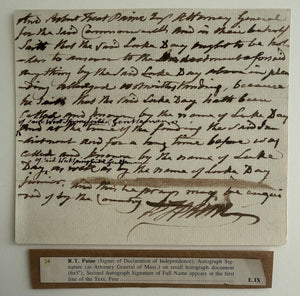 And Robert Treat Paine Esqr Attorney General
for the said Commonwealth and in their behalf
saith that the said Luke Day ought to be hol-
den to answer to the Indictment aforesaid
any thing by the said Luke Day above in plead-
ing alledged notwithstanding, because
he saith that the said Luke Day hath been
called and known by the name of Luke Day
of said West Springfield Gentleman
and at the time of the finding the said In-
dictment and for a long time before was
called and known by the name of Luke
Day of said West Springfield
as well as by the name of Luke Day
Junior. And this he prays may be enqui-
red of by the Country.
RTPaine
24 R.T. Paine (Signer of Declaration of Independence), Autograph Sig-
nature (as Attorney General of Mass.) on small holograph document
(6x5"). Second Autograph Signature of Full Name appears in the first
line of the Text, Fine
E.IX